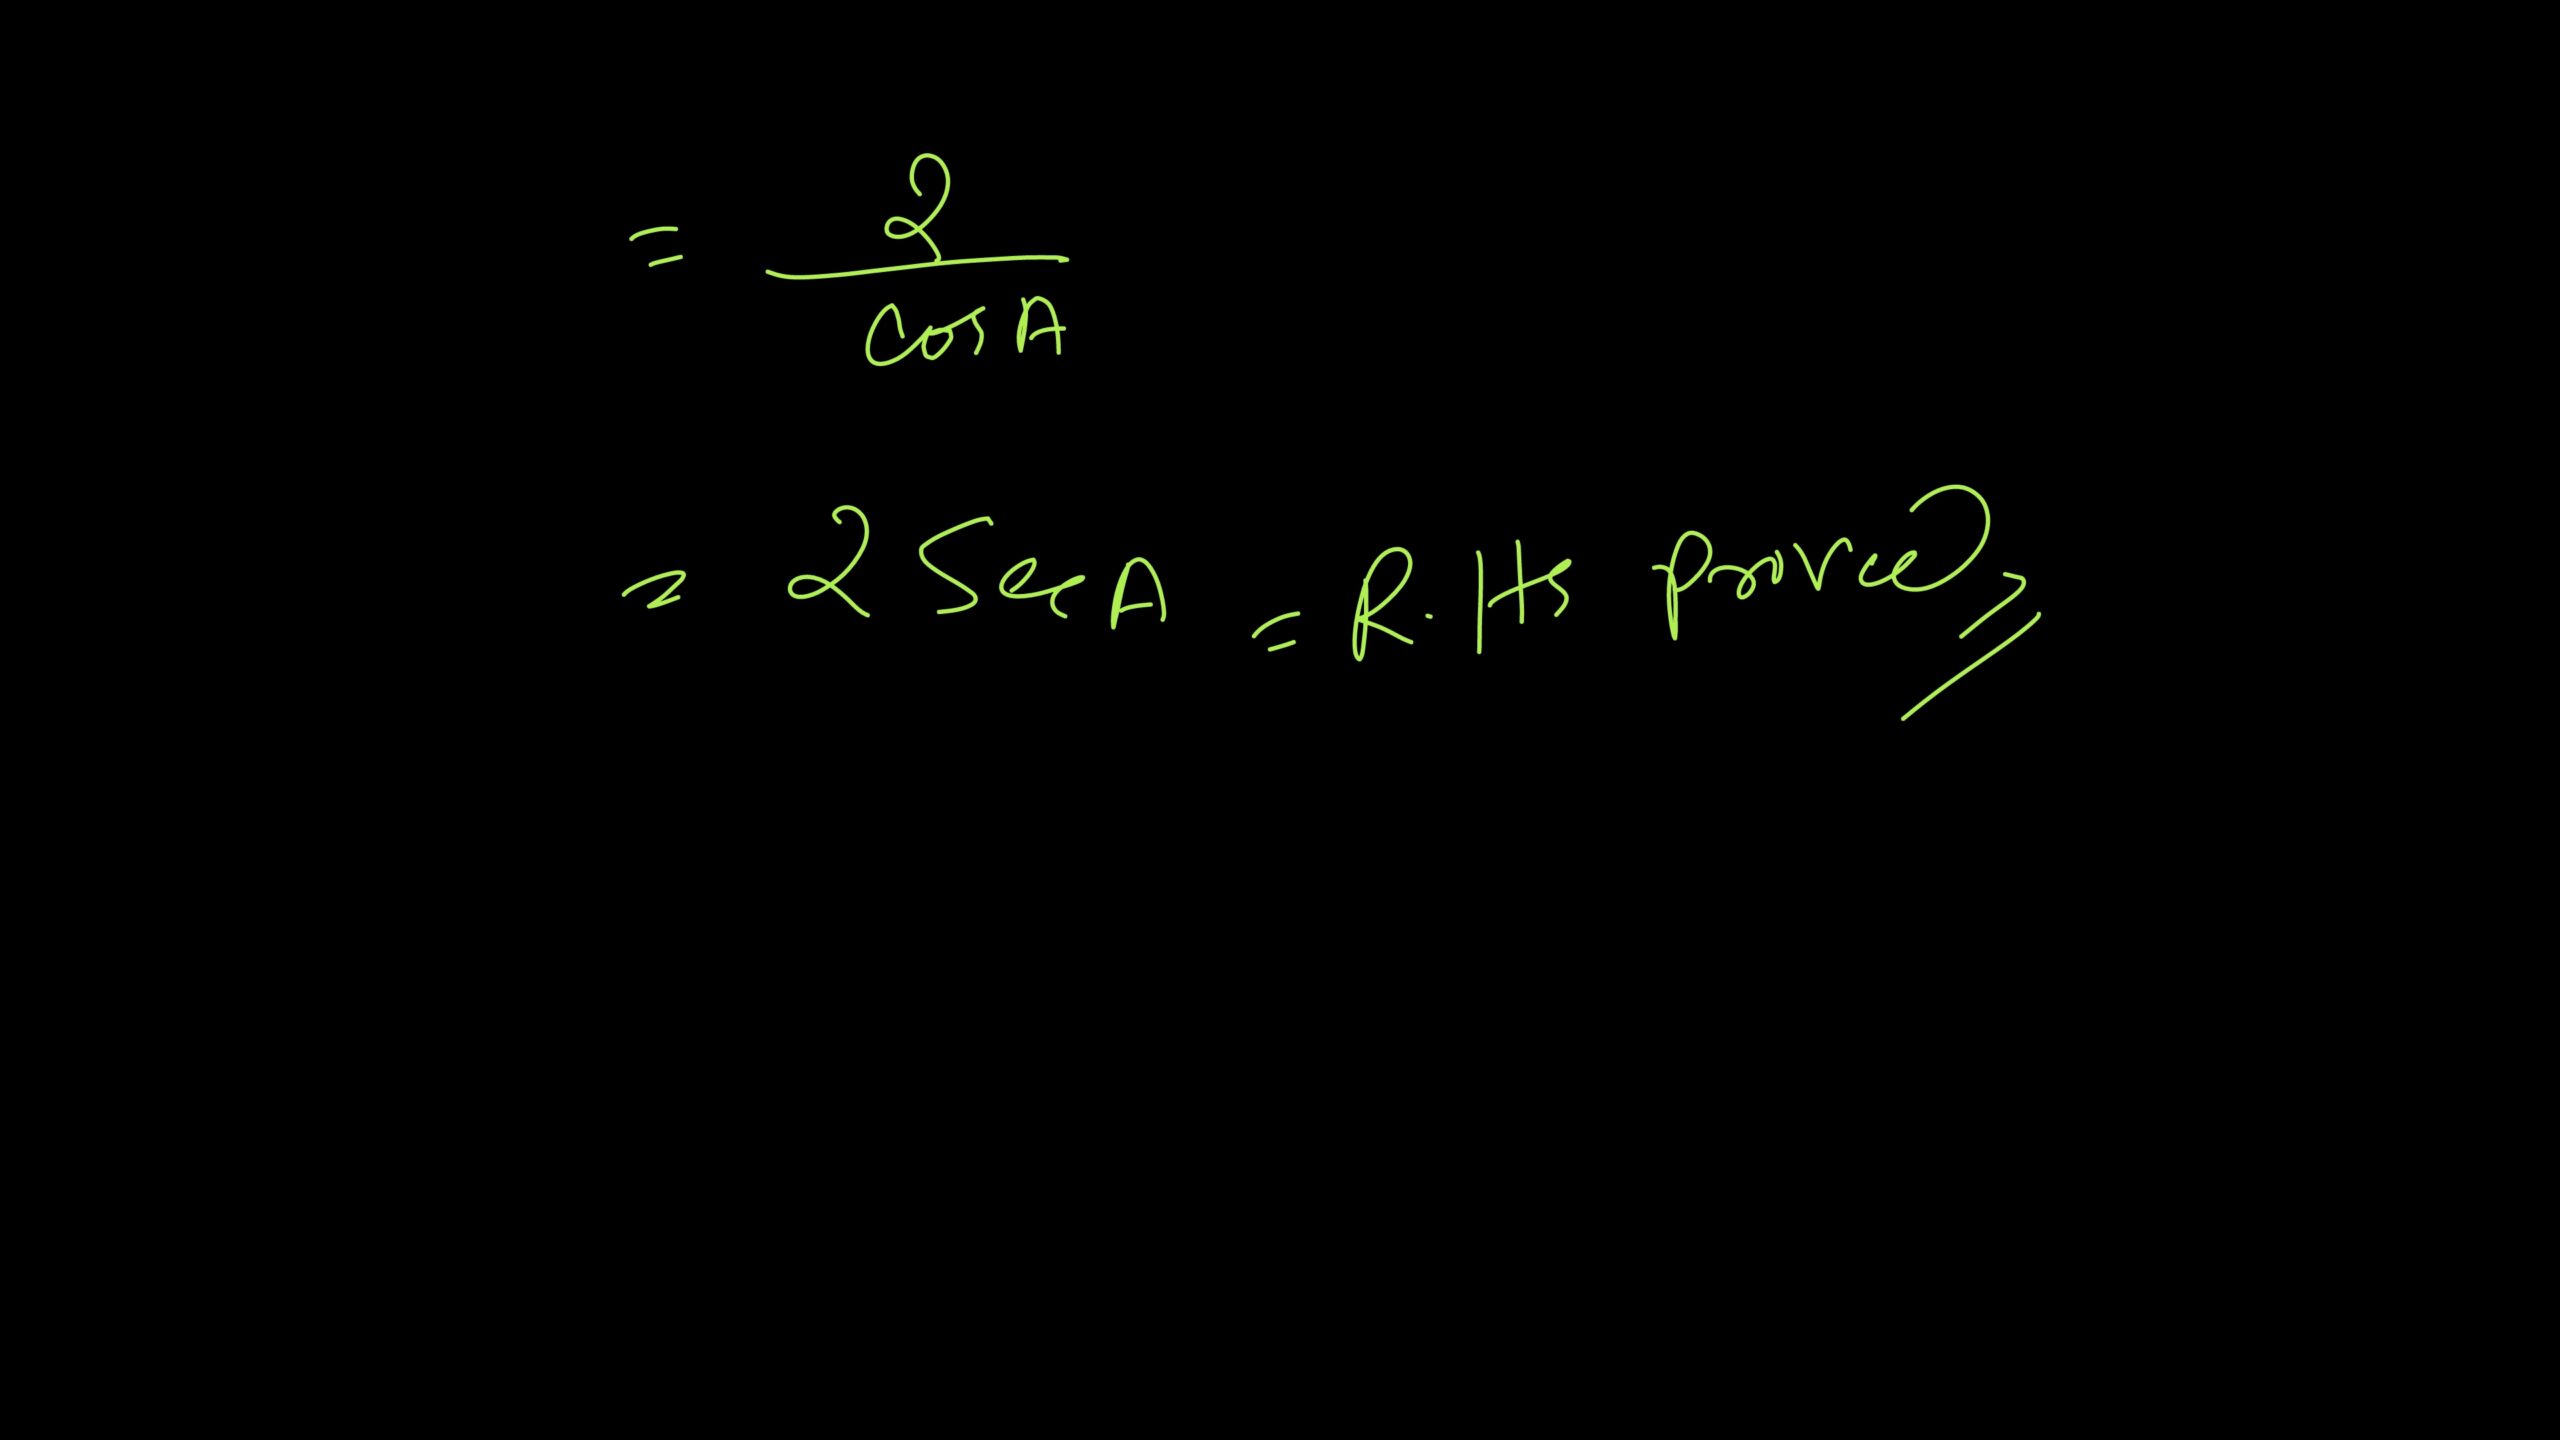 = 2 / cos A
= 2 Sec A = R.Hs proved